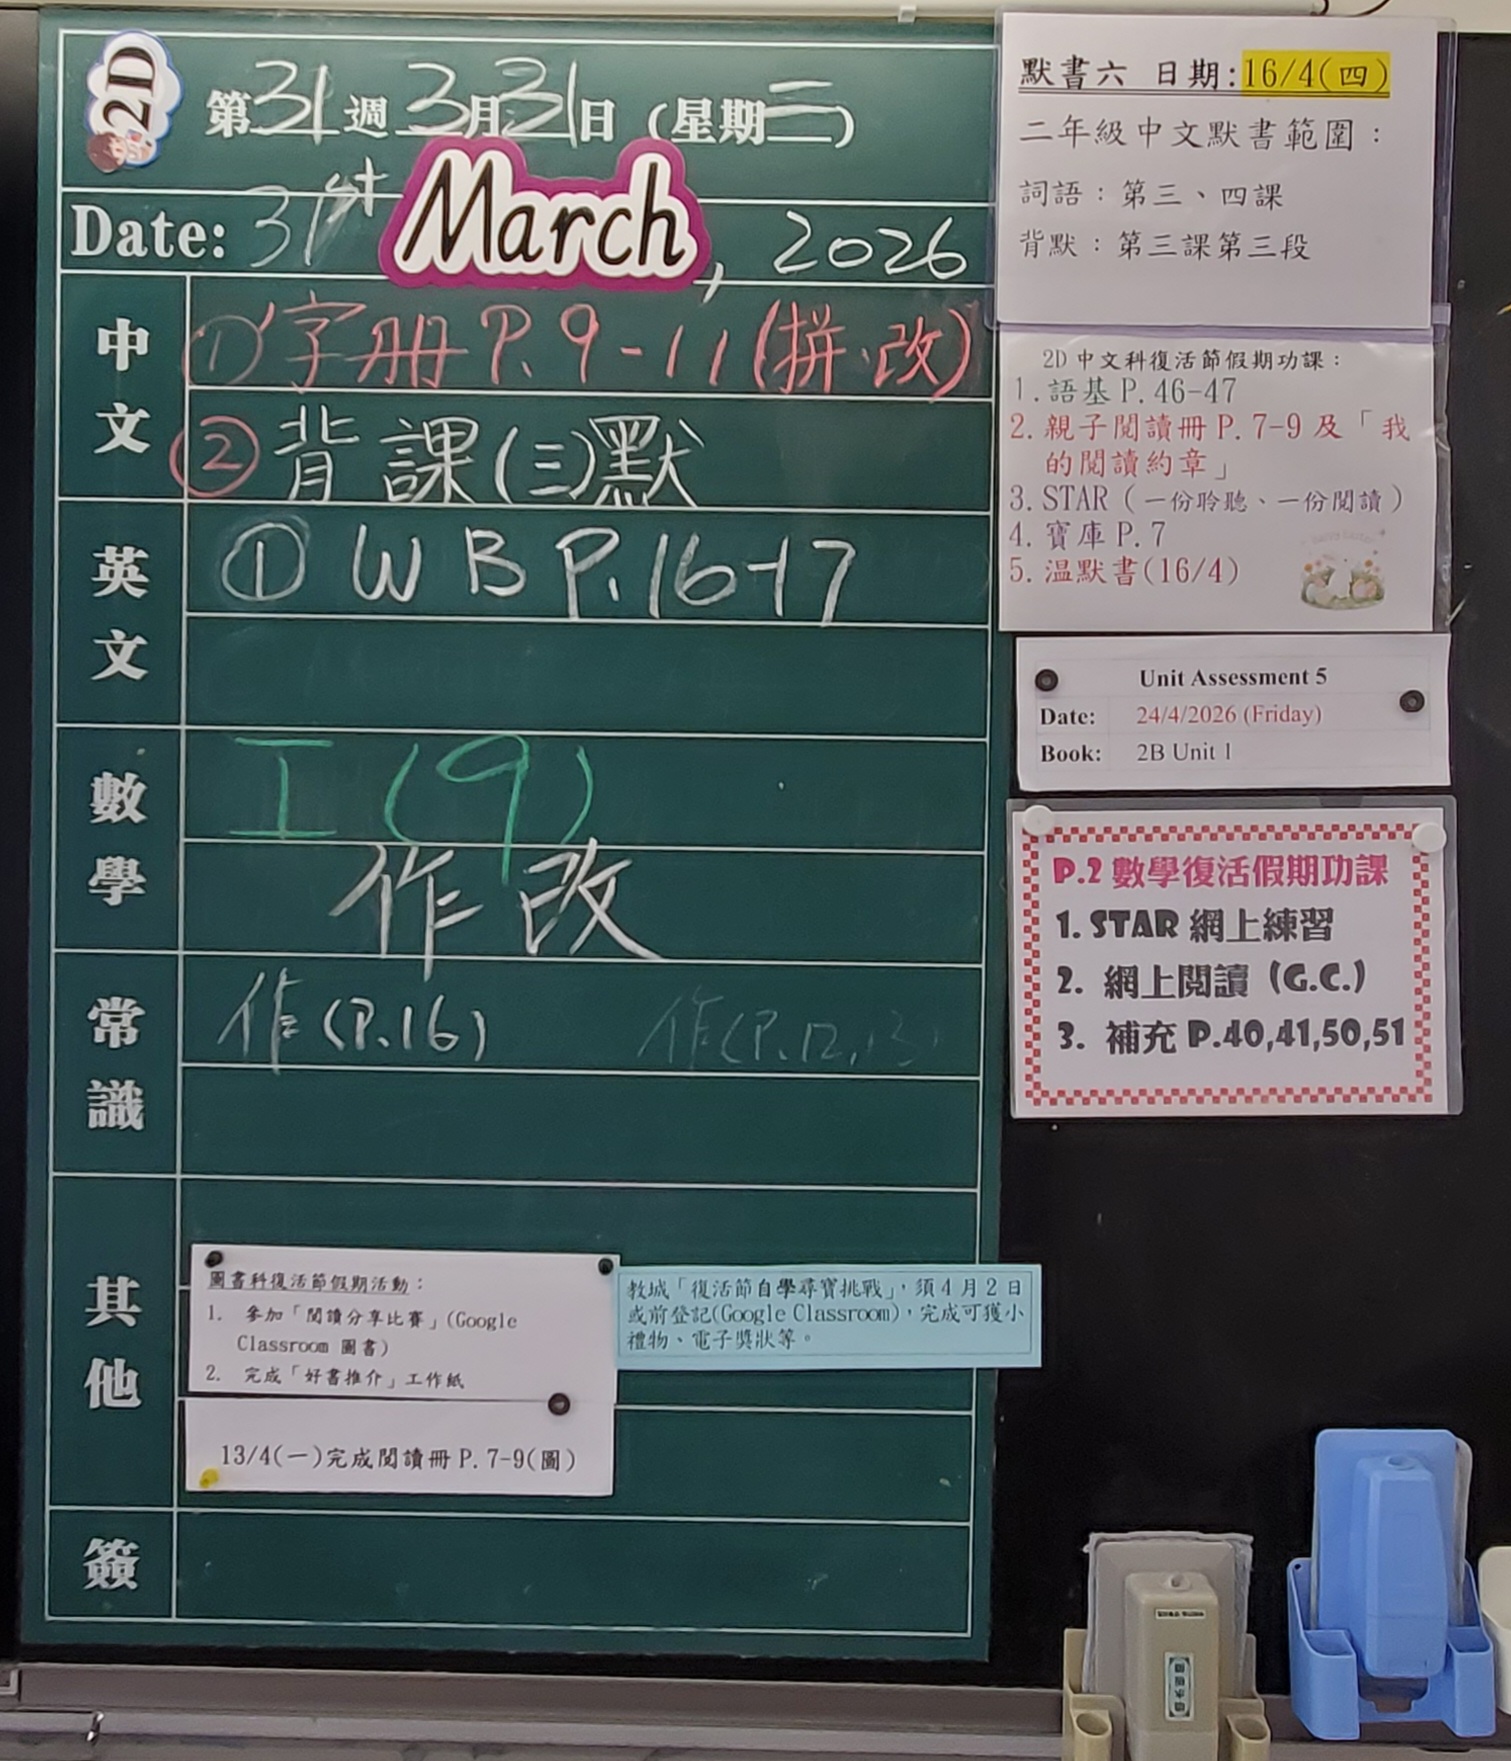 2D
第31週3月31日(星期二)
Date: 31st March, 2026
中文
①字册P.9-11(拼、改)
②背課(三)默
英文
①WB P.16-17
數學
I(9)
作改
常識
作(P.16) 作(P.12,13)
其他
圖書科復活節假期活動:
1. 參加「閱讀分享比賽」(Google
Classroom 圖書)
2. 完成「好書推介」工作紙
13/4(一)完成閱讀冊 P.7-9(圖)
教城「復活節自學尋寶挑戰」,須4月2日
或前登記(Google Classroom),完成可獲小
禮物、電子獎狀等。
簽
默書六 日期:16/4(四)
二年級中文默書範圍:
詞語:第三、四課
背默:第三課第三段
2D 中文科復活節假期功課:
1. 語基 P.46-47
2. 親子閱讀冊 P.7-9 及「我
的閱讀約章」
3. STAR(一份聆聽、一份閱讀)
4. 寶庫 P.7
5. 温默書(16/4)
Unit Assessment 5
Date: 24/4/2026 (Friday)
Book: 2B Unit 1
P.2 數學復活假期功課
1. STAR 網上練習
2. 網上閱讀 (G.C.)
3. 補充 P.40,41,50,51